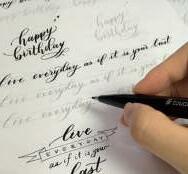 happy
birthday
happy
birthday
live everyday as if it is your last
live everyday as if it is your last
live everyday
live
EVERYDAY
as if it is your
last